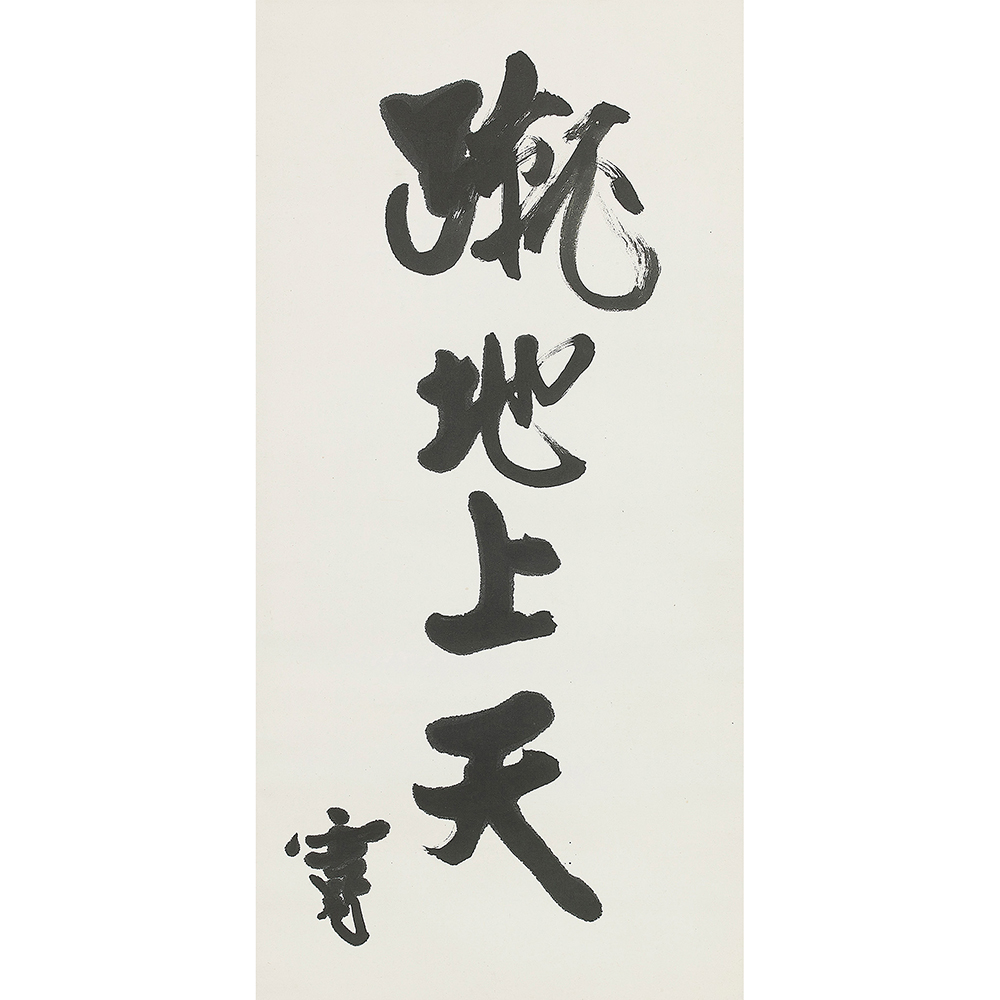 蹴地上天